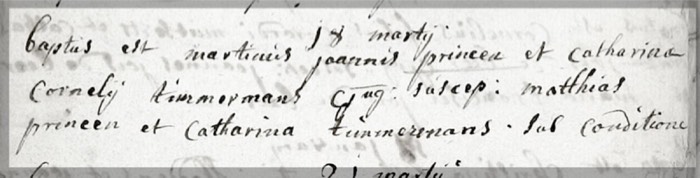 18 martij
baptus est martinus joannis princen et catharina
Cornelij timmermans Cjug: suscep: matthias
princen et Catharina timmermans. sub conditione
21 martij